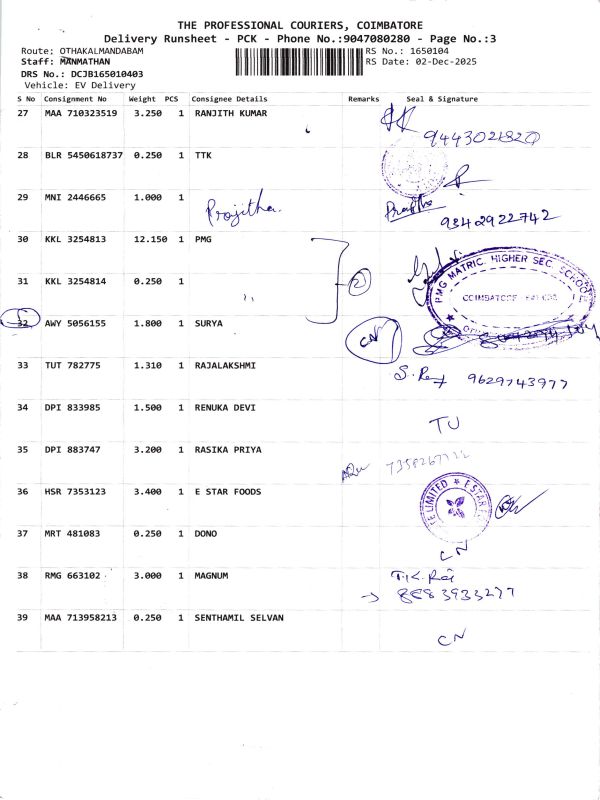 THE PROFESSIONAL COURIERS, COIMBATORE
Delivery Runsheet - PCK - Phone No.:9047080280 - Page No.:3
Route: OTHAKALMANDABAM RS No.: 1650104
Staff: MANMATHAN RS Date: 02-Dec-2025
DRS No.: DCJB165010403
Vehicle: EV Delivery
S No Consignment No Weight PCS Consignee Details Remarks Seal & Signature
27 MAA 710323519 3.250 1 RANJITH KUMAR
28 BLR 5450618737 0.250 1 TTK
29 MNI 2446665 1.000 1 Projitha. 9342922742
30 KKL 3254813 12.150 1 PMG
31 KKL 3254814 0.250 1 " 2
PMG MATRIC. HIGHER SEC. SCHOOL
COIMBATORE
32 AWY 5056155 1.800 1 SURYA CN
33 TUT 782775 1.310 1 RAJALAKSHMI 9629743977
34 DPI 833985 1.500 1 RENUKA DEVI TU
35 DPI 883747 3.200 1 RASIKA PRIYA
36 HSR 7353123 3.400 1 E STAR FOODS
LIMITED ★ E STAR
37 MRT 481083 0.250 1 DONO CN
38 RMG 663102 3.000 1 MAGNUM
39 MAA 713958213 0.250 1 SENTHAMIL SELVAN CN